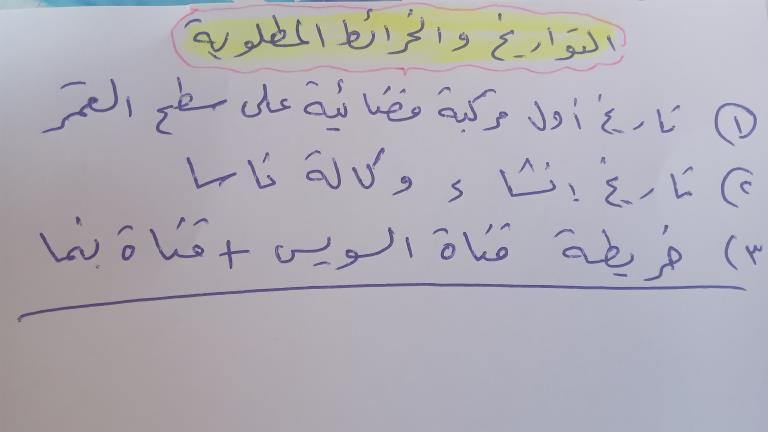 التواريخ والخرائط المطلوبة
١) تاريخ أول مركبة فضائية على سطح القمر
٢) تاريخ إنشاء وكالة ناسا
٣) خريطة قناة السويس + قناة بنما